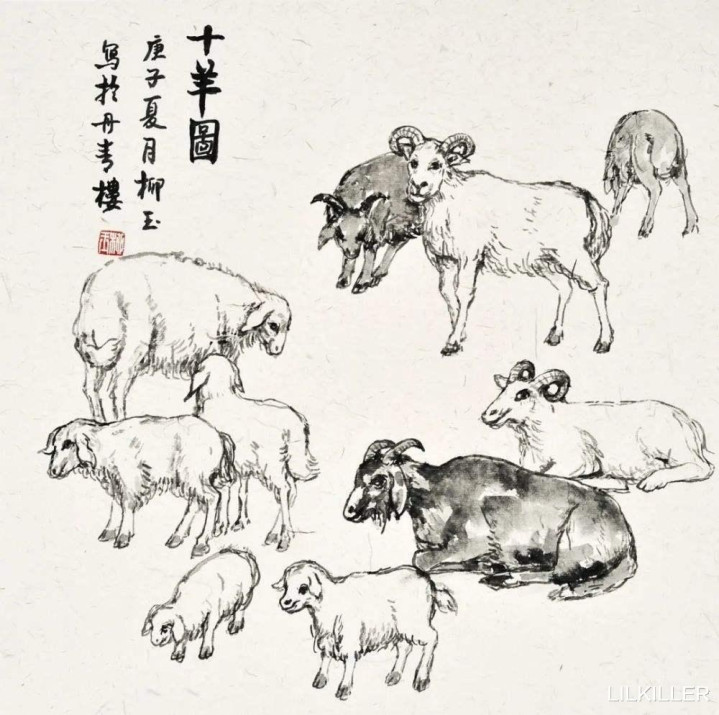 十羊圖
庚子夏月柳玉
写於丹青樓
柳玉
LILKILLER